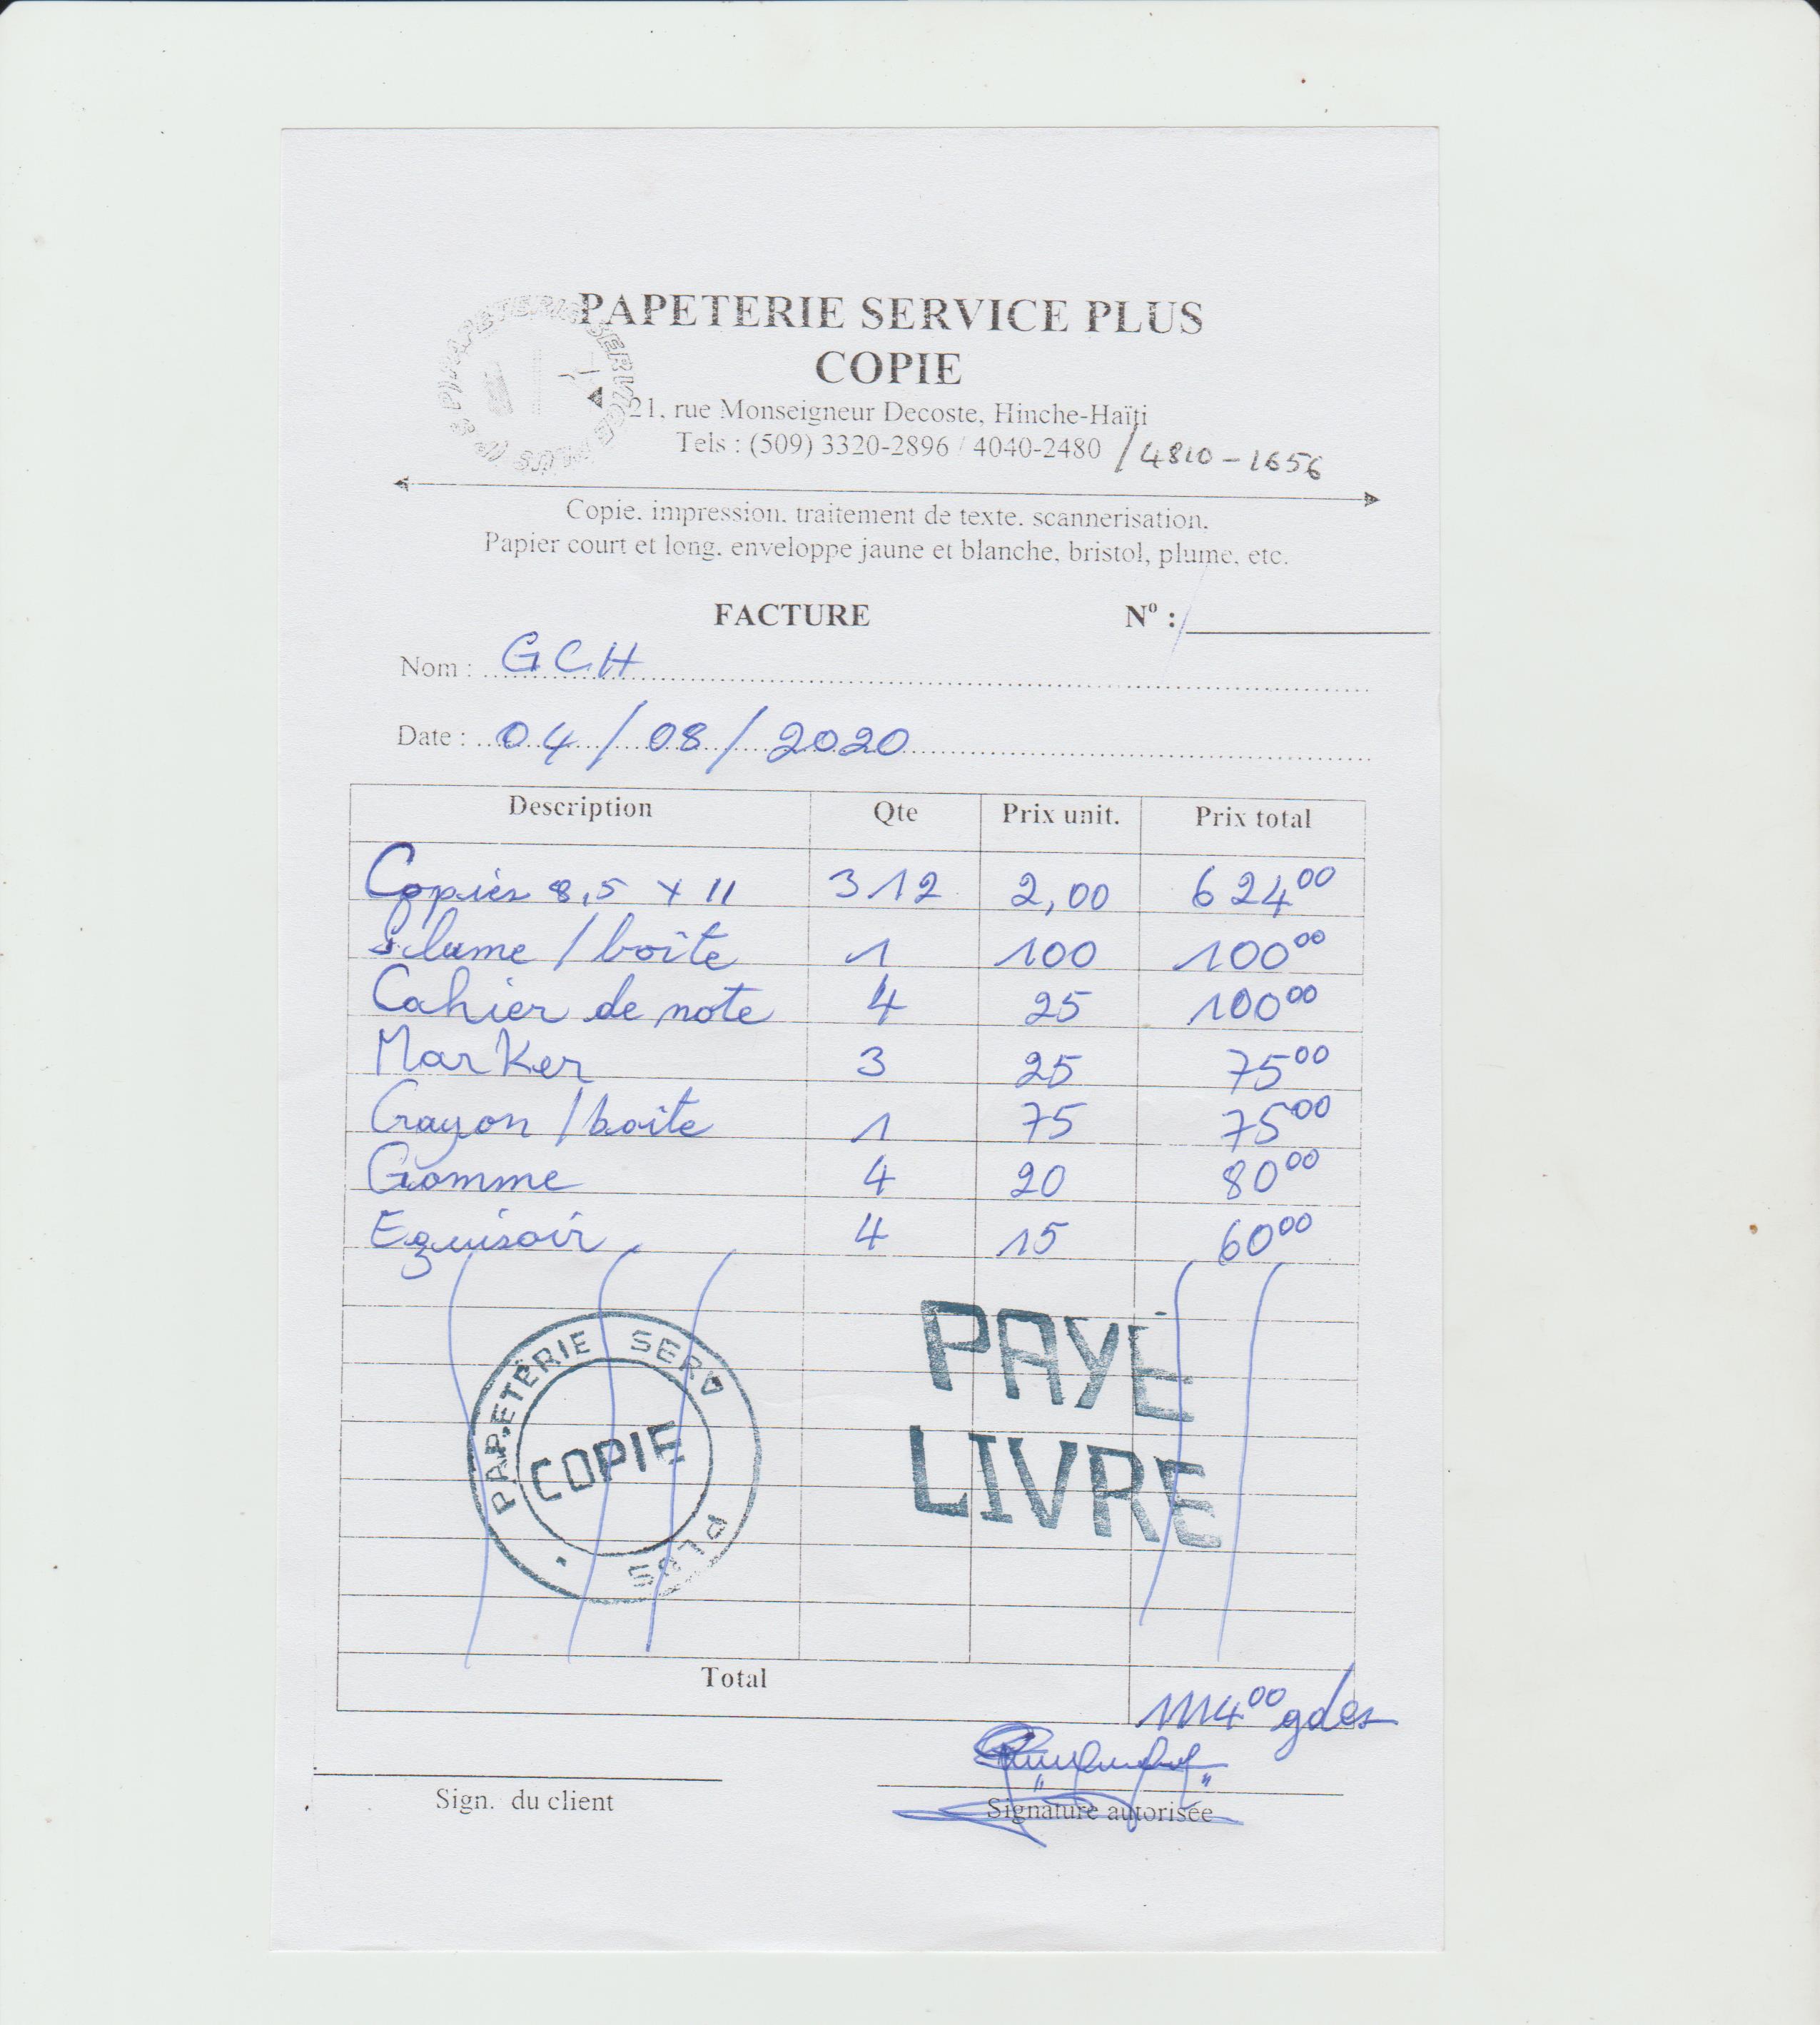 PAPETERIE SERVICE PLUS
COPIE
21, rue Monseigneur Decoste, Hinche-Haïti
Tels : (509) 3320-2896 / 4040-2480 / 4810-1656
Copie, impression, traitement de texte, scannerisation,
Papier court et long, enveloppe jaune et blanche, bristol, plume, etc.
FACTURE Nº :
Nom : GCH
Date : 04/08/2020
Description Qte Prix unit. Prix total
Copies 8,5 x 11 312 2,00 624 00
Plume / boîte 1 100 100 00
Cahier de note 4 25 100 00
Marker 3 25 75 00
Crayon / boîte 1 75 75 00
Gomme 4 20 80 00
Eguisoir 4 15 60 00
PAPETERIE SERV PLUS
COPIE
PAYÉ
LIVRE
Total 1114 00 gdes
Sign. du client Signature autorisée